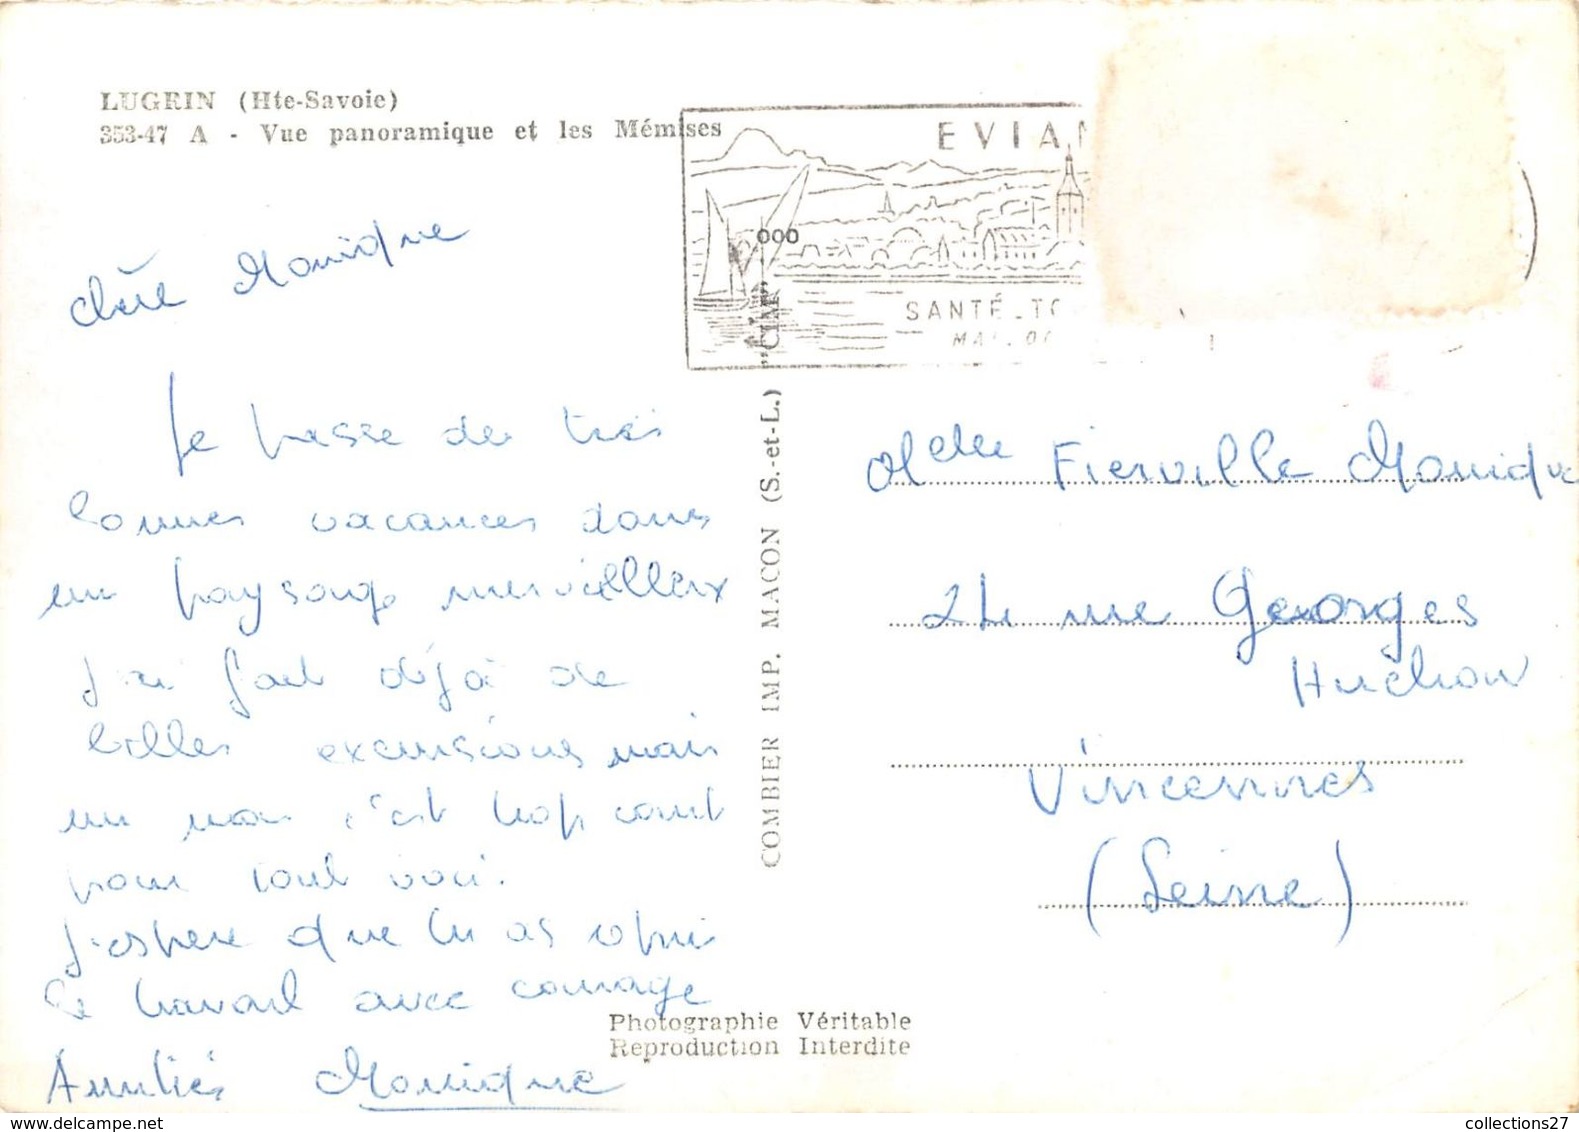 LUGRIN (Hte-Savoie)
353-47 A - Vue panoramique et les Mémises
EVIAN
SANTÉ - TO
MAI. O
chère Monique
Je passe de très
bonnes vacances dans
un paysage merveilleux
J'ai fait déjà de
belles excursions mais
un mois c'est trop court
pour tout voir.
J'espère que tu as repris
le travail avec courage
Amitiés Monique
COMBIER IMP. MACON (S.-et-L.) "CIM"
Photographie Véritable
Reproduction Interdite
Melle Fierville Monique
24 rue Georges
Huchon
Vincennes
(Seine)
collections27